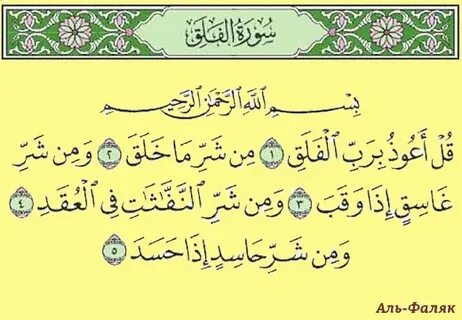 سُورَةُ الفَلَقِ
بِسْمِ اللَّهِ الرَّحْمَٰنِ الرَّحِيمِ
قُلْ أَعُوذُ بِرَبِّ ٱلْفَلَقِ ١ مِن شَرِّ مَا خَلَقَ ٢ وَمِن شَرِّ
غَاسِقٍ إِذَا وَقَبَ ٣ وَمِن شَرِّ ٱلنَّفَّٰثَٰتِ فِى ٱلْعُقَدِ ٤
وَمِن شَرِّ حَاسِدٍ إِذَا حَسَدَ ٥
Аль-Фаляк